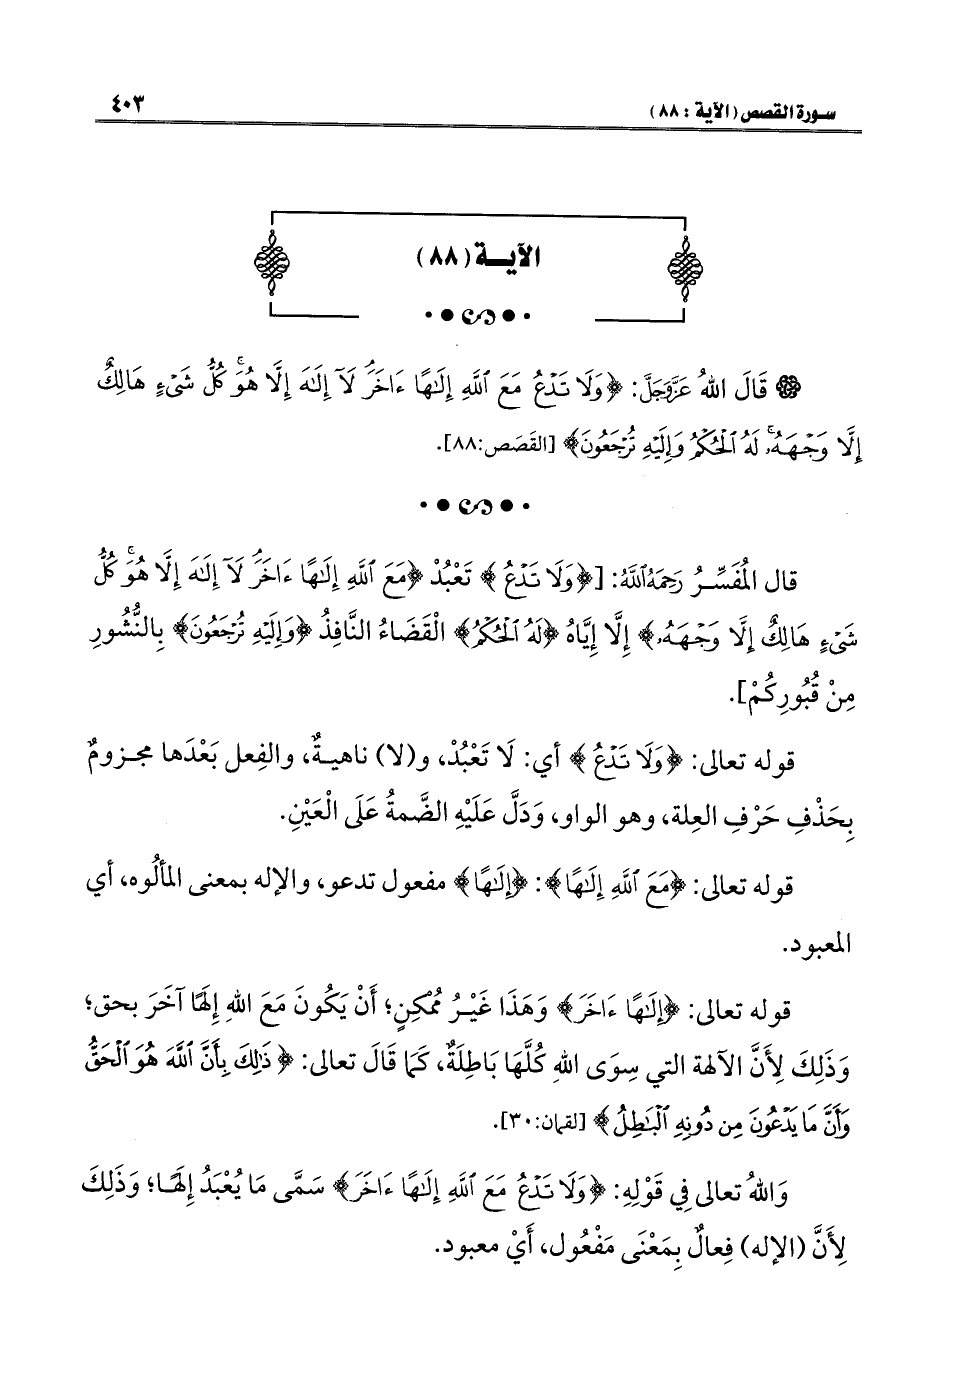 سورة القصص (الآية : ٨٨)
٤٠٣
الآيـــة (٨٨)
قَالَ اللهُ عَزَّوَجَلَّ: ﴿وَلَا تَدْعُ مَعَ ٱللَّهِ إِلَـٰهًا ءَاخَرَ ۘ لَآ إِلَـٰهَ إِلَّا هُوَ ۚ كُلُّ شَىْءٍ هَالِكٌ
إِلَّا وَجْهَهُۥ ۚ لَهُ ٱلْحُكْمُ وَإِلَيْهِ تُرْجَعُونَ﴾ [القَصَص:٨٨].
قال المُفَسِّـرُ رَحِمَهُ ٱللَّهُ: [﴿وَلَا تَدْعُ﴾ تَعْبُدْ ﴿مَعَ ٱللَّهِ إِلَـٰهًا ءَاخَرَ ۘ لَآ إِلَـٰهَ إِلَّا هُوَ ۚ كُلُّ
شَىْءٍ هَالِكٌ إِلَّا وَجْهَهُۥ﴾ إِلَّا إِيَّاهُ ﴿لَهُ ٱلْحُكْمُ﴾ الْقَضَاءُ النَّافِذُ ﴿وَإِلَيْهِ تُرْجَعُونَ﴾ بِالنُّشُورِ
مِنْ قُبُورِكُمْ].
قوله تعالى: ﴿وَلَا تَدْعُ﴾ أي: لَا تَعْبُدْ، و(لا) ناهيـةٌ، والفِعل بَعْدَها مجـزومٌ
بِحَذْفِ حَرْفِ العِلة، وهو الواو، وَدَلَّ عَلَيْهِ الضَّمةُ عَلَى الْعَيْنِ.
قوله تعالى: ﴿مَعَ ٱللَّهِ إِلَـٰهًا﴾: ﴿إِلَـٰهًا﴾ مفعول تدعو، والإله بمعنى المألُوه، أي
المعبود.
قوله تعالى: ﴿إِلَـٰهًا ءَاخَرَ﴾ وَهَذَا غَيْـرُ مُمْكِنٍ؛ أَنْ يَكُونَ مَعَ اللهِ إِلَهًا آخَرَ بحق؛
وَذَلِكَ لِأَنَّ الآلهة التي سِوَى اللهِ كُلَّهَا بَاطِلَةٌ، كَمَا قَالَ تعالى: ﴿ذَٰلِكَ بِأَنَّ ٱللَّهَ هُوَ ٱلْحَقُّ
وَأَنَّ مَا يَدْعُونَ مِن دُونِهِ ٱلْبَـٰطِلُ﴾ [لقمان:٣٠].
وَاللهُ تعالى فِي قَوْلِهِ: ﴿وَلَا تَدْعُ مَعَ ٱللَّهِ إِلَـٰهًا ءَاخَرَ﴾ سَمَّى مَا يُعْبَدُ إِلَهًـا؛ وَذَلِكَ
لِأَنَّ (الإله) فِعالٌ بِمَعْنَى مَفْعُول، أَيْ معبود.